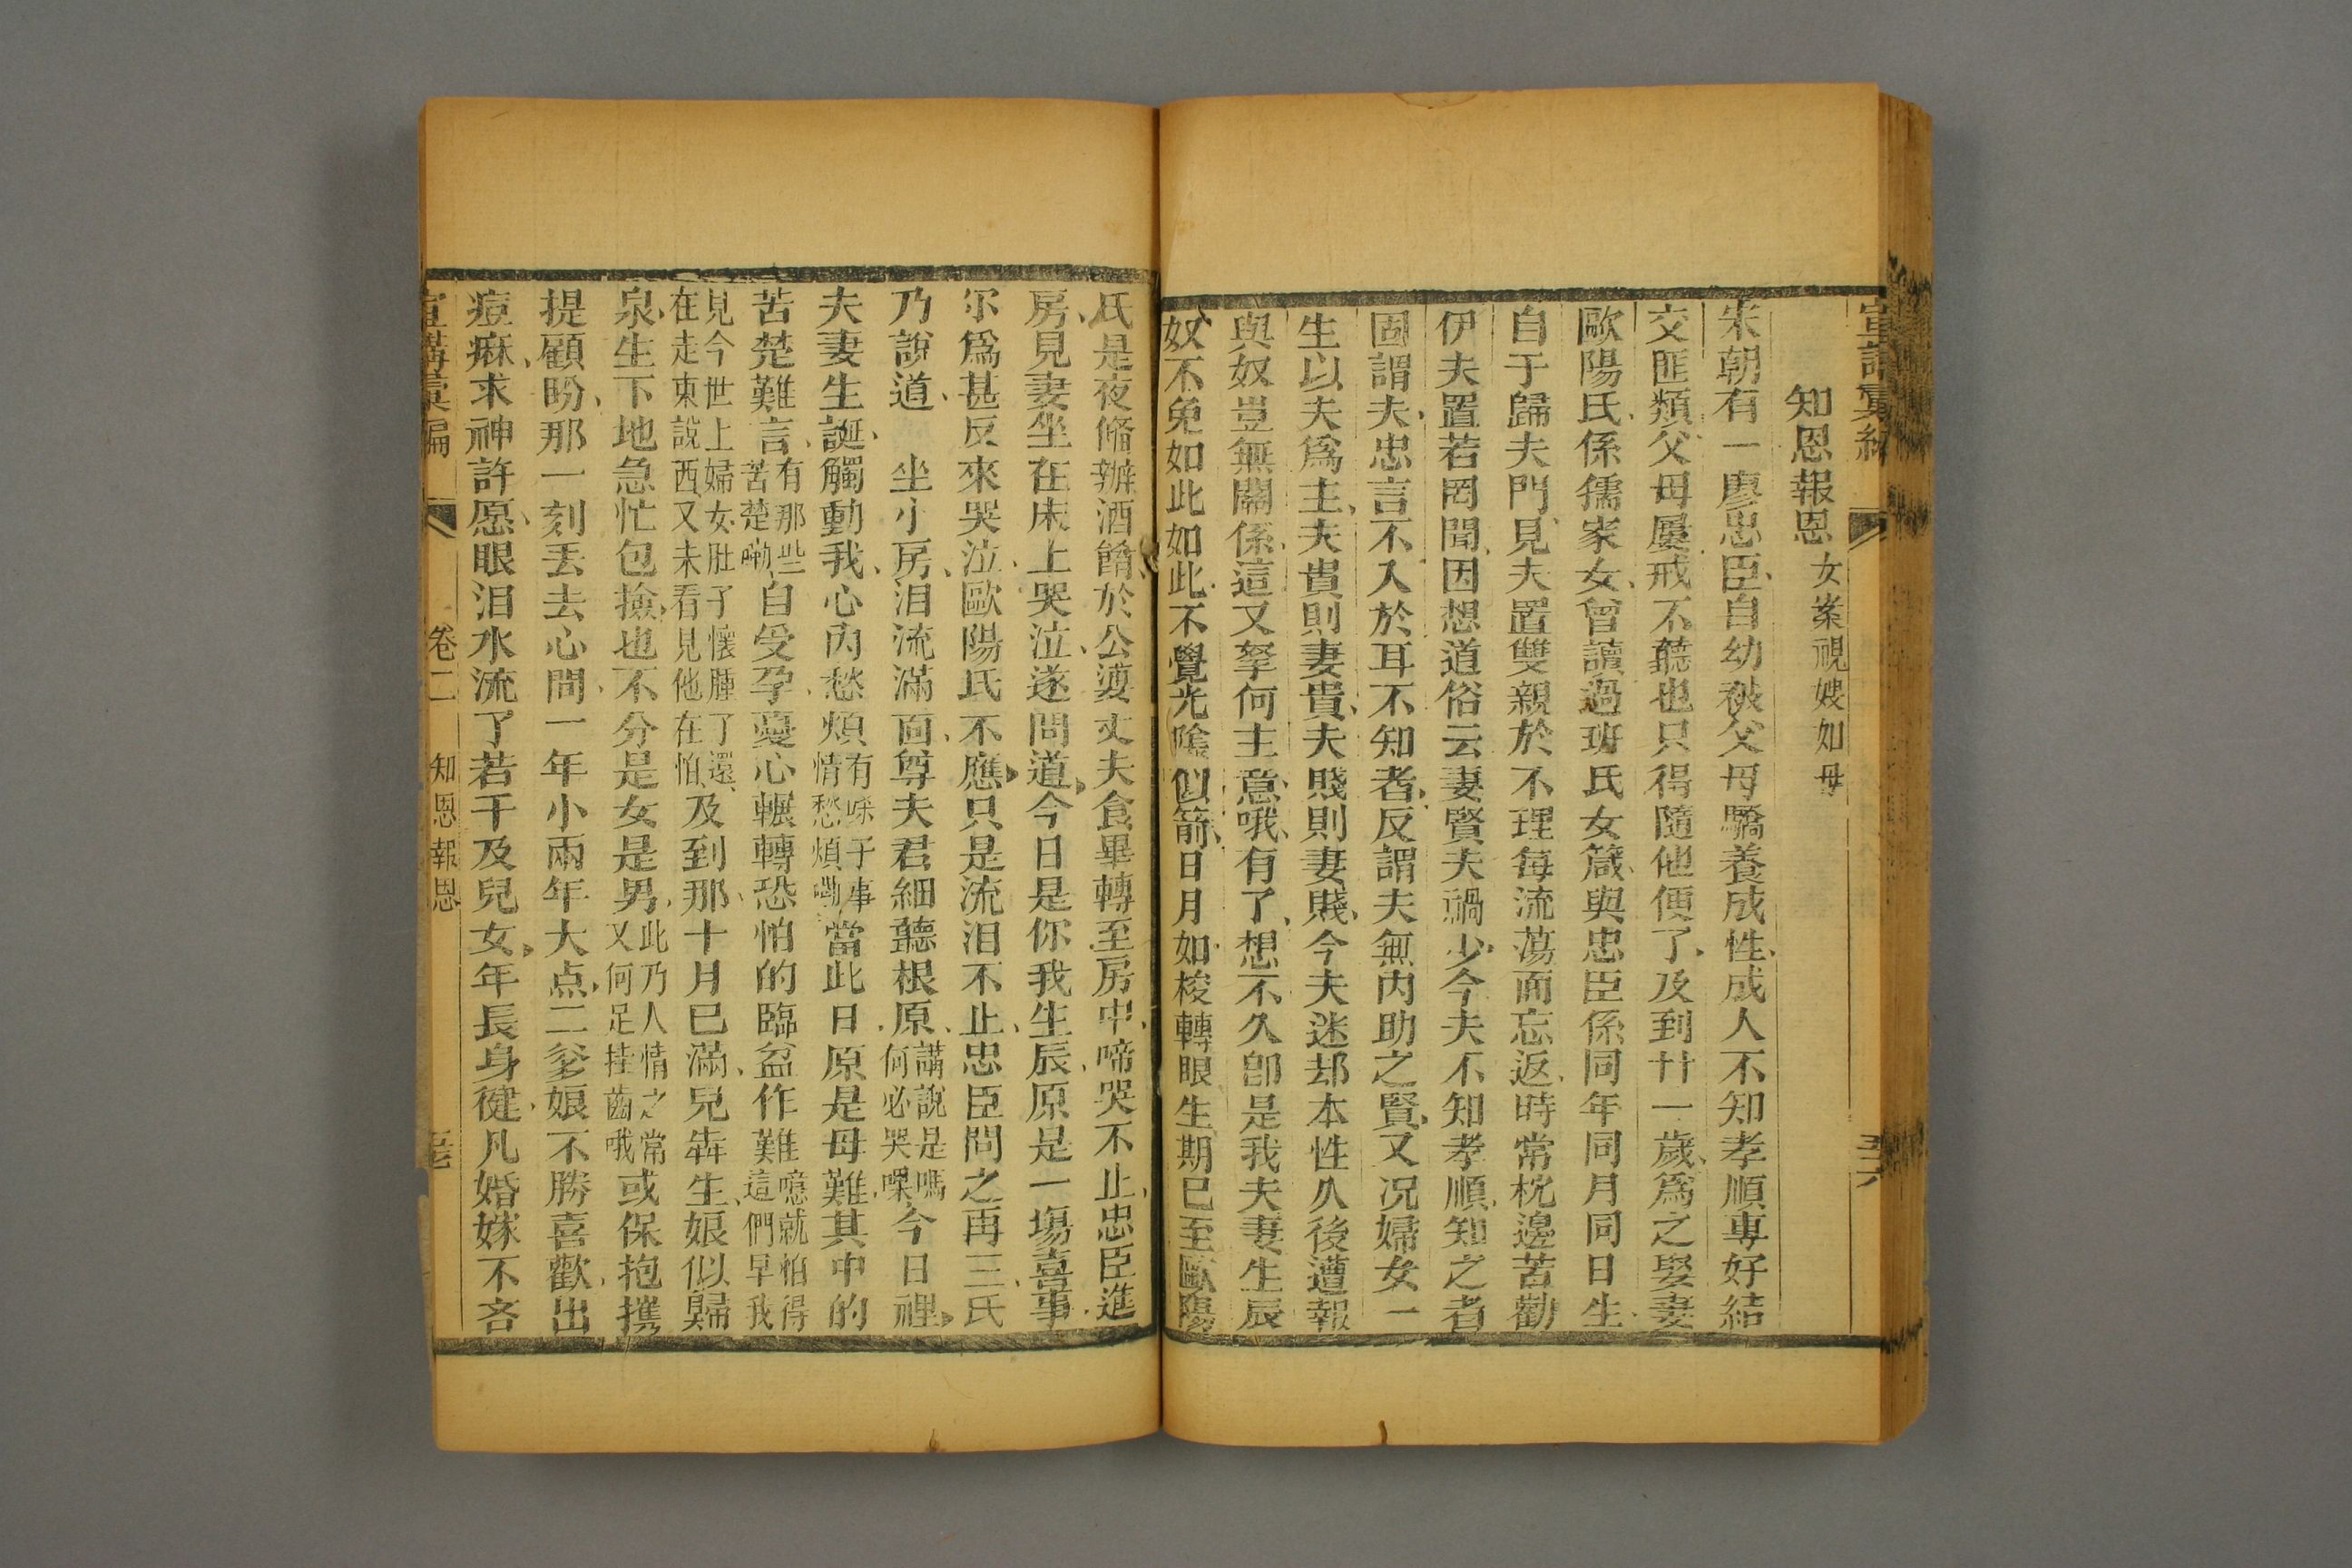 宣講彙編
知恩報恩 女案視嫂如母
宋朝有一廖忠臣自幼被父母驕養成性成人不知孝順專好結
交匪類父母屢戒不聽也只得隨他便了及到廿一歲為之娶妻
歐陽氏係儒家女曾讀過班氏女箴與忠臣係同年同月同日生
自于歸夫門見夫置雙親於不理每流蕩而忘返時常枕邊苦勸
伊夫置若罔聞因想道俗云妻賢夫禍少今夫不知孝順知之者
固謂夫忠言不入於耳不知者反謂夫無內助之賢又況婦女一
生以夫為主夫貴則妻貴夫賤則妻賤今夫迷却本性久後遭報
與奴豈無關係這又拏何主意哦有了想不久卽是我夫妻生辰
奴不免如此如此不覺光陰似箭日月如梭轉眼生期已至歐陽
五十六
氏是夜偹辦酒餚於公婆丈夫食畢轉至房中啼哭不止忠臣進
房見妻坐在床上哭泣遂問道今日是你我生辰原是一塲喜事
尔為甚反來哭泣歐陽氏不應只是流泪不止忠臣問之再三氏
乃說道 坐小房泪流滿面尊夫君細聽根原講說是嗎何必哭㗖今日裡
夫妻生誕觸動我心內愁煩有啥子事情愁煩嘞當此日原是母難其中的
苦楚難言有那些苦楚嘞自受孕憂心輾轉恐怕的臨盆作難噫就怕得這們早我
見今世上婦女肚子懷腫了還在走東說西又未看見他在怕及到那十月已滿兒犇生娘似歸
泉生下地急忙包撿也不分是女是男此乃人情之常又何足挂齒哦或保抱攜
提顧盼那一刻丟去心間一年小兩年大点二爹娘不勝喜歡出
痘痳求神許愿眼泪水流了若干及兒女年長身健凡婚嫁不吝
宣講彙編 卷二 知恩報恩